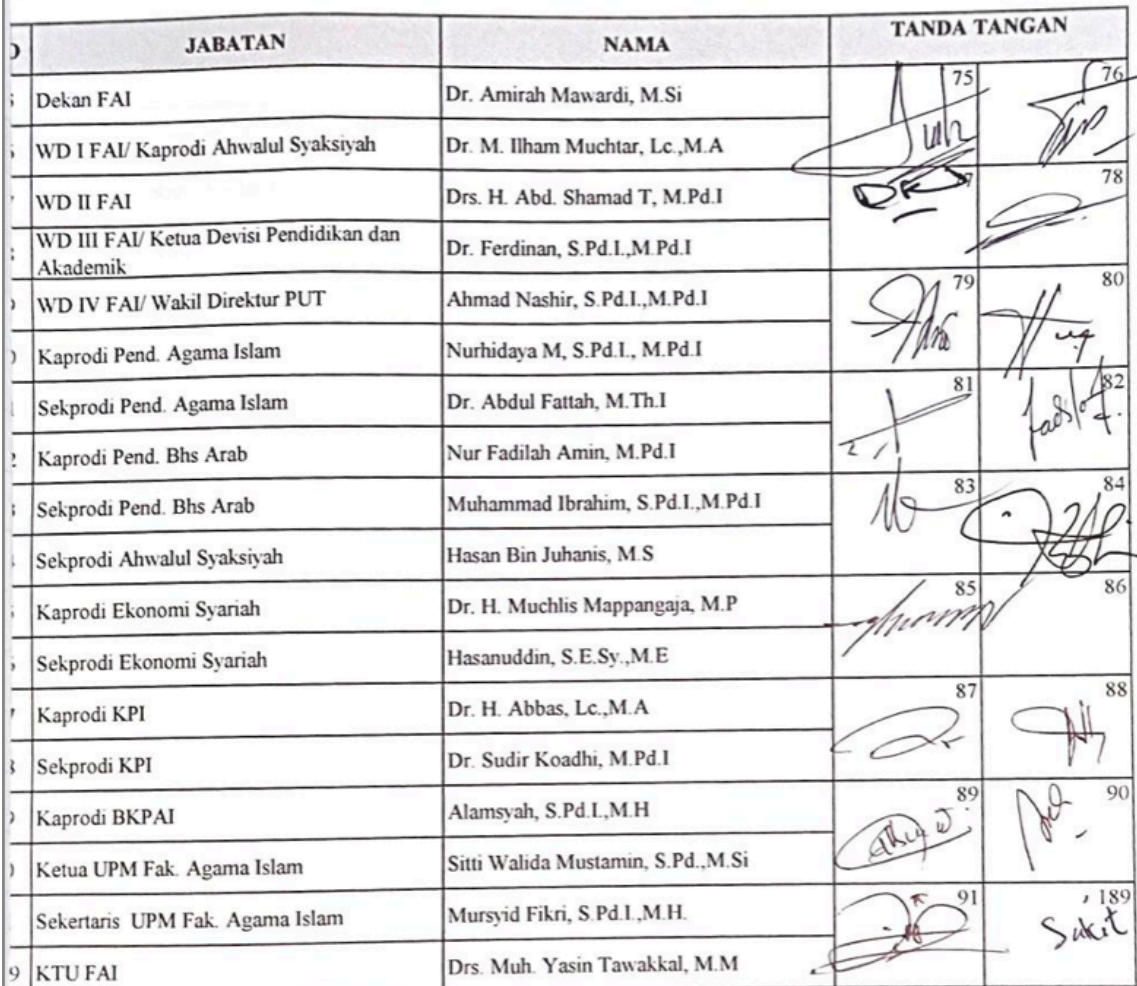 JABATAN NAMA TANDA TANGAN
Dekan FAI Dr. Amirah Mawardi, M.Si 75 76
WD I FAI/ Kaprodi Ahwalul Syaksiyah Dr. M. Ilham Muchtar, Lc.,M.A
WD II FAI Drs. H. Abd. Shamad T, M.Pd.I 78
WD III FAI/ Ketua Devisi Pendidikan dan
Akademik Dr. Ferdinan, S.Pd.I.,M.Pd.I
WD IV FAI/ Wakil Direktur PUT Ahmad Nashir, S.Pd.I.,M.Pd.I 79 80
Kaprodi Pend. Agama Islam Nurhidaya M, S.Pd.I., M.Pd.I
Sekprodi Pend. Agama Islam Dr. Abdul Fattah, M.Th.I 81 82
Kaprodi Pend. Bhs Arab Nur Fadilah Amin, M.Pd.I
Sekprodi Pend. Bhs Arab Muhammad Ibrahim, S.Pd.I.,M.Pd.I 83 84
Sekprodi Ahwalul Syaksiyah Hasan Bin Juhanis, M.S
Kaprodi Ekonomi Syariah Dr. H. Muchlis Mappangaja, M.P 85 86
Sekprodi Ekonomi Syariah Hasanuddin, S.E.Sy.,M.E
Kaprodi KPI Dr. H. Abbas, Lc.,M.A 87 88
Sekprodi KPI Dr. Sudir Koadhi, M.Pd.I
Kaprodi BKPAI Alamsyah, S.Pd.I.,M.H 89 90
Ketua UPM Fak. Agama Islam Sitti Walida Mustamin, S.Pd.,M.Si
Sekertaris UPM Fak. Agama Islam Mursyid Fikri, S.Pd.I.,M.H. 91 189
Sakit
9 KTU FAI Drs. Muh. Yasin Tawakkal, M.M